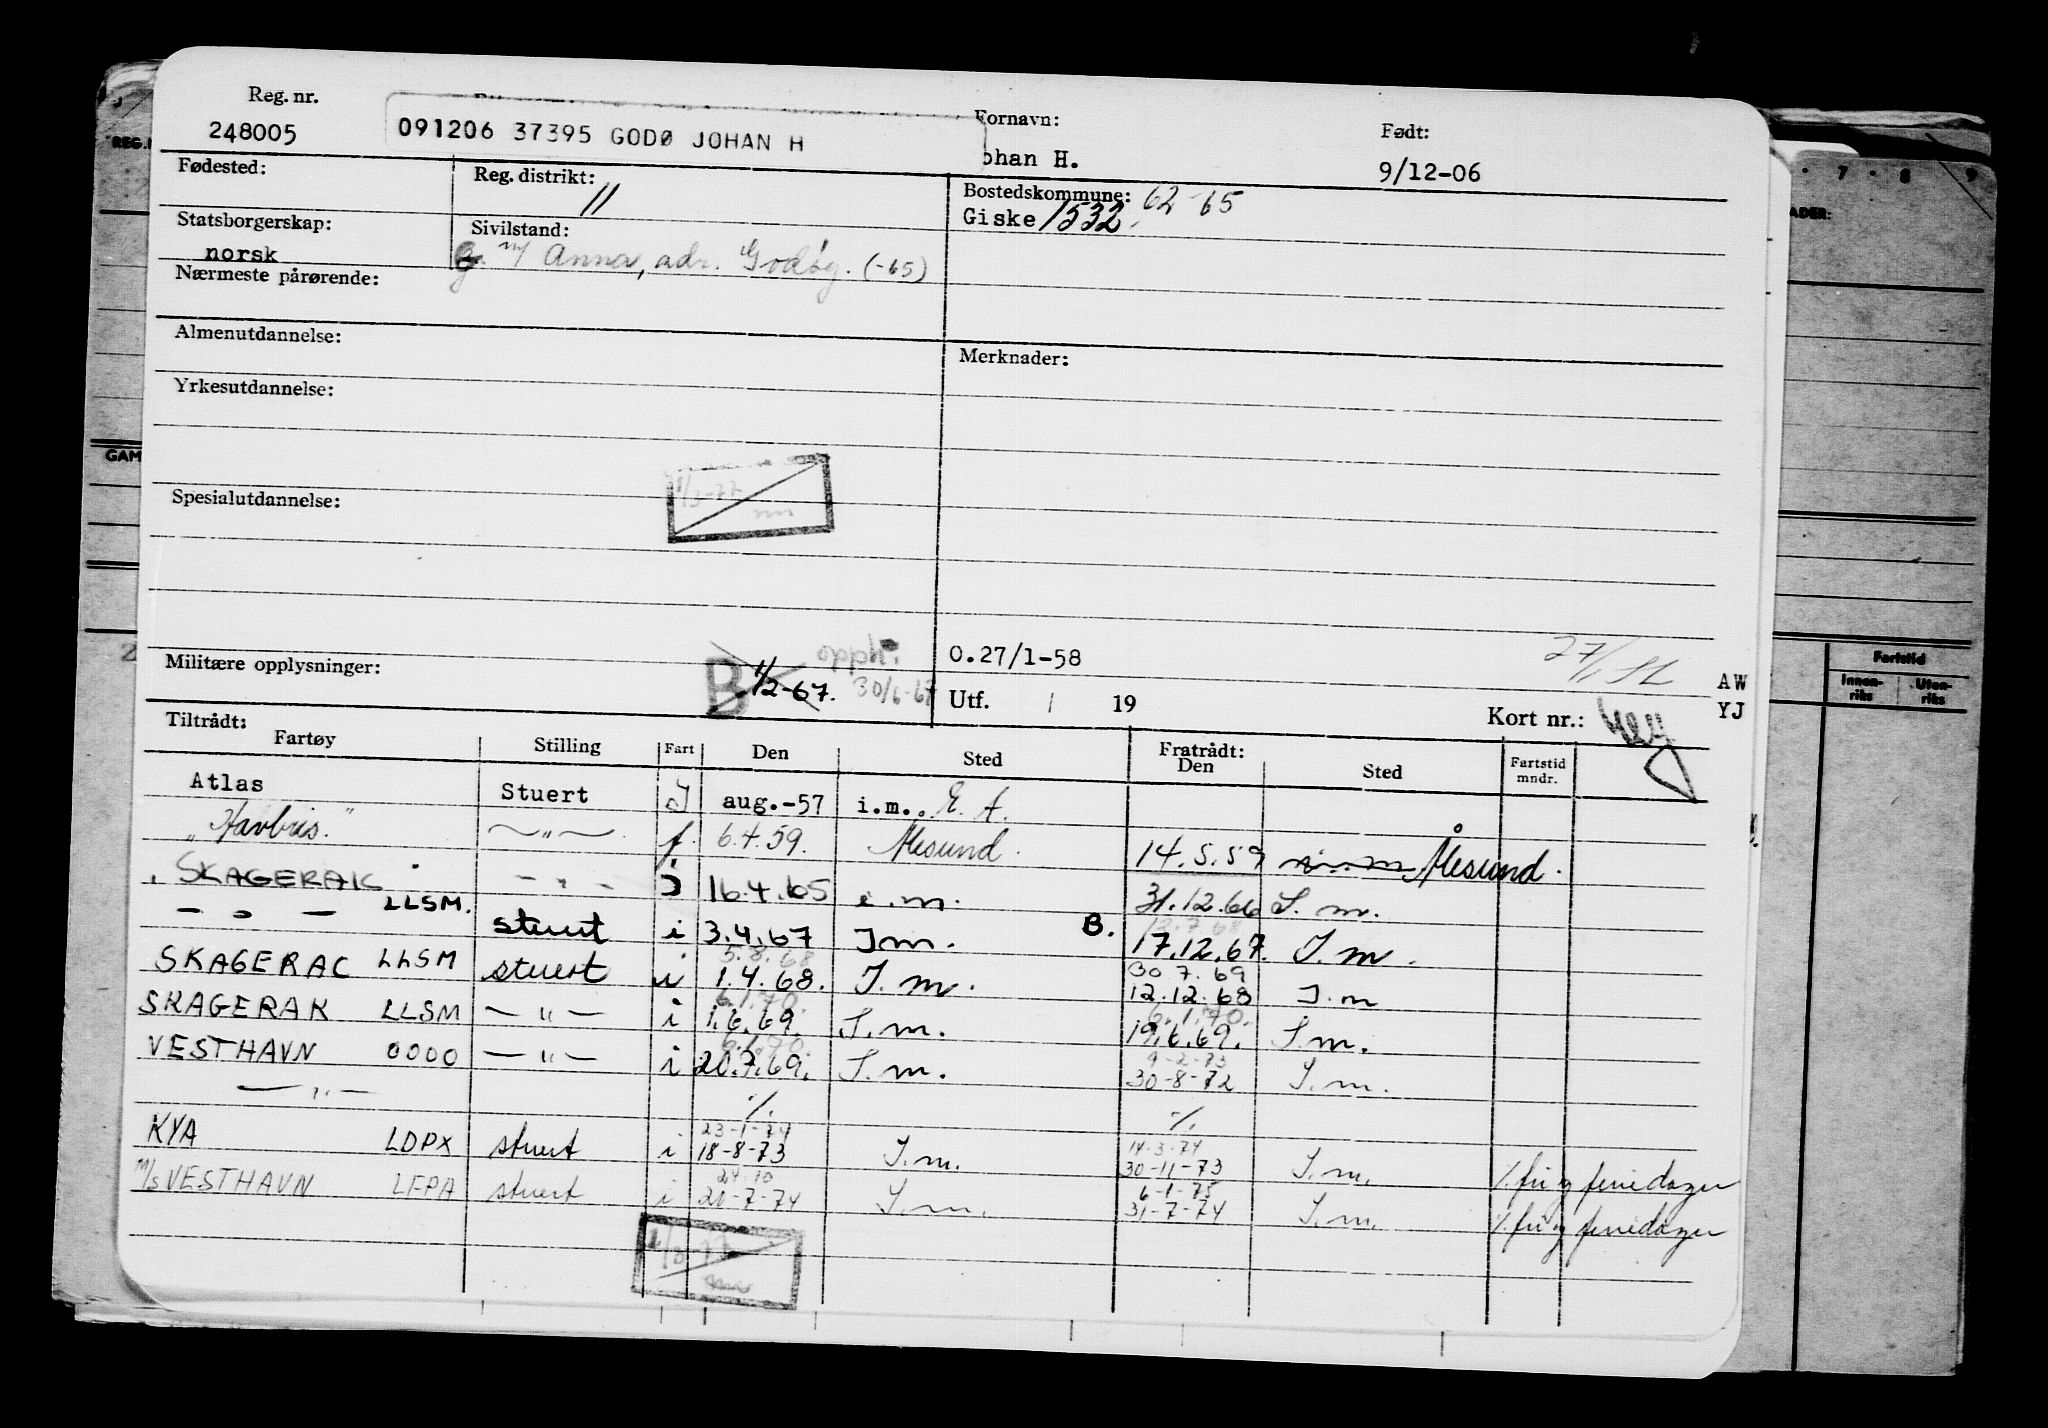 Reg. nr.
248005
091206 37395 GODØ JOHAN H
Fornavn:
ohan H.
Født:
9/12-06
Fødested:
Reg. distrikt:
11
Bostedskommune: 62-65
Giske 1532
Statsborgerskap:
norsk
Sivilstand:
g. m/ Anna, adr. Godøy. (-65)
Nærmeste pårørende:
Almenutdannelse:
Merknader:
Yrkesutdannelse:
Spesialutdannelse:
Militære opplysninger:
B 1/2-67.
30/6-67
O.27/1-58
Utf. 19
Kort nr.:
AW
YJ
Tiltrådt:
Fartøy Stilling Fart Den Sted
Fratrådt:
Den Sted Fartstid mndr.
Atlas Stuert I aug.-57 i.m.. E. A.
"Havbris." — " — f. 6.4.59. Ålesund. 14.5.59 i.m. Ålesund.
SKAGERAK - " - I 16.4.65 i.m. 31.12.66 I.m.
LLSM.
— " — stuert i 3.4.67 I m. B. 17.12.67. I.m.
5.8.68 30 7.69
SKAGERAC LLSM stuert i 1.4.68. I.m. 12.12.68 I.m
6.1.70. 6.1.70.
SKAGERAK LLSM — " — i 1.6.69. I.m. 19.6.69. I.m.
6.1.70. 9-2-73
VESTHAVN 0000 — " — i 20.7.69. I.m. 30-8-72 I.m.
— " — %. %.
23-1-74 14-3-74
KYA LDPX stuert i 18-8-73 I.m. 30-11-73 I.m. %. fri og feriedager
24-10 6-1-75
m/s VESTHAVN LFPA stuert i 20-7-74 I.m. 31-7-74 I.m. %. fri og feriedager
GAM
Fartstid
Innen-
riks
Uten-
riks
7 8 9